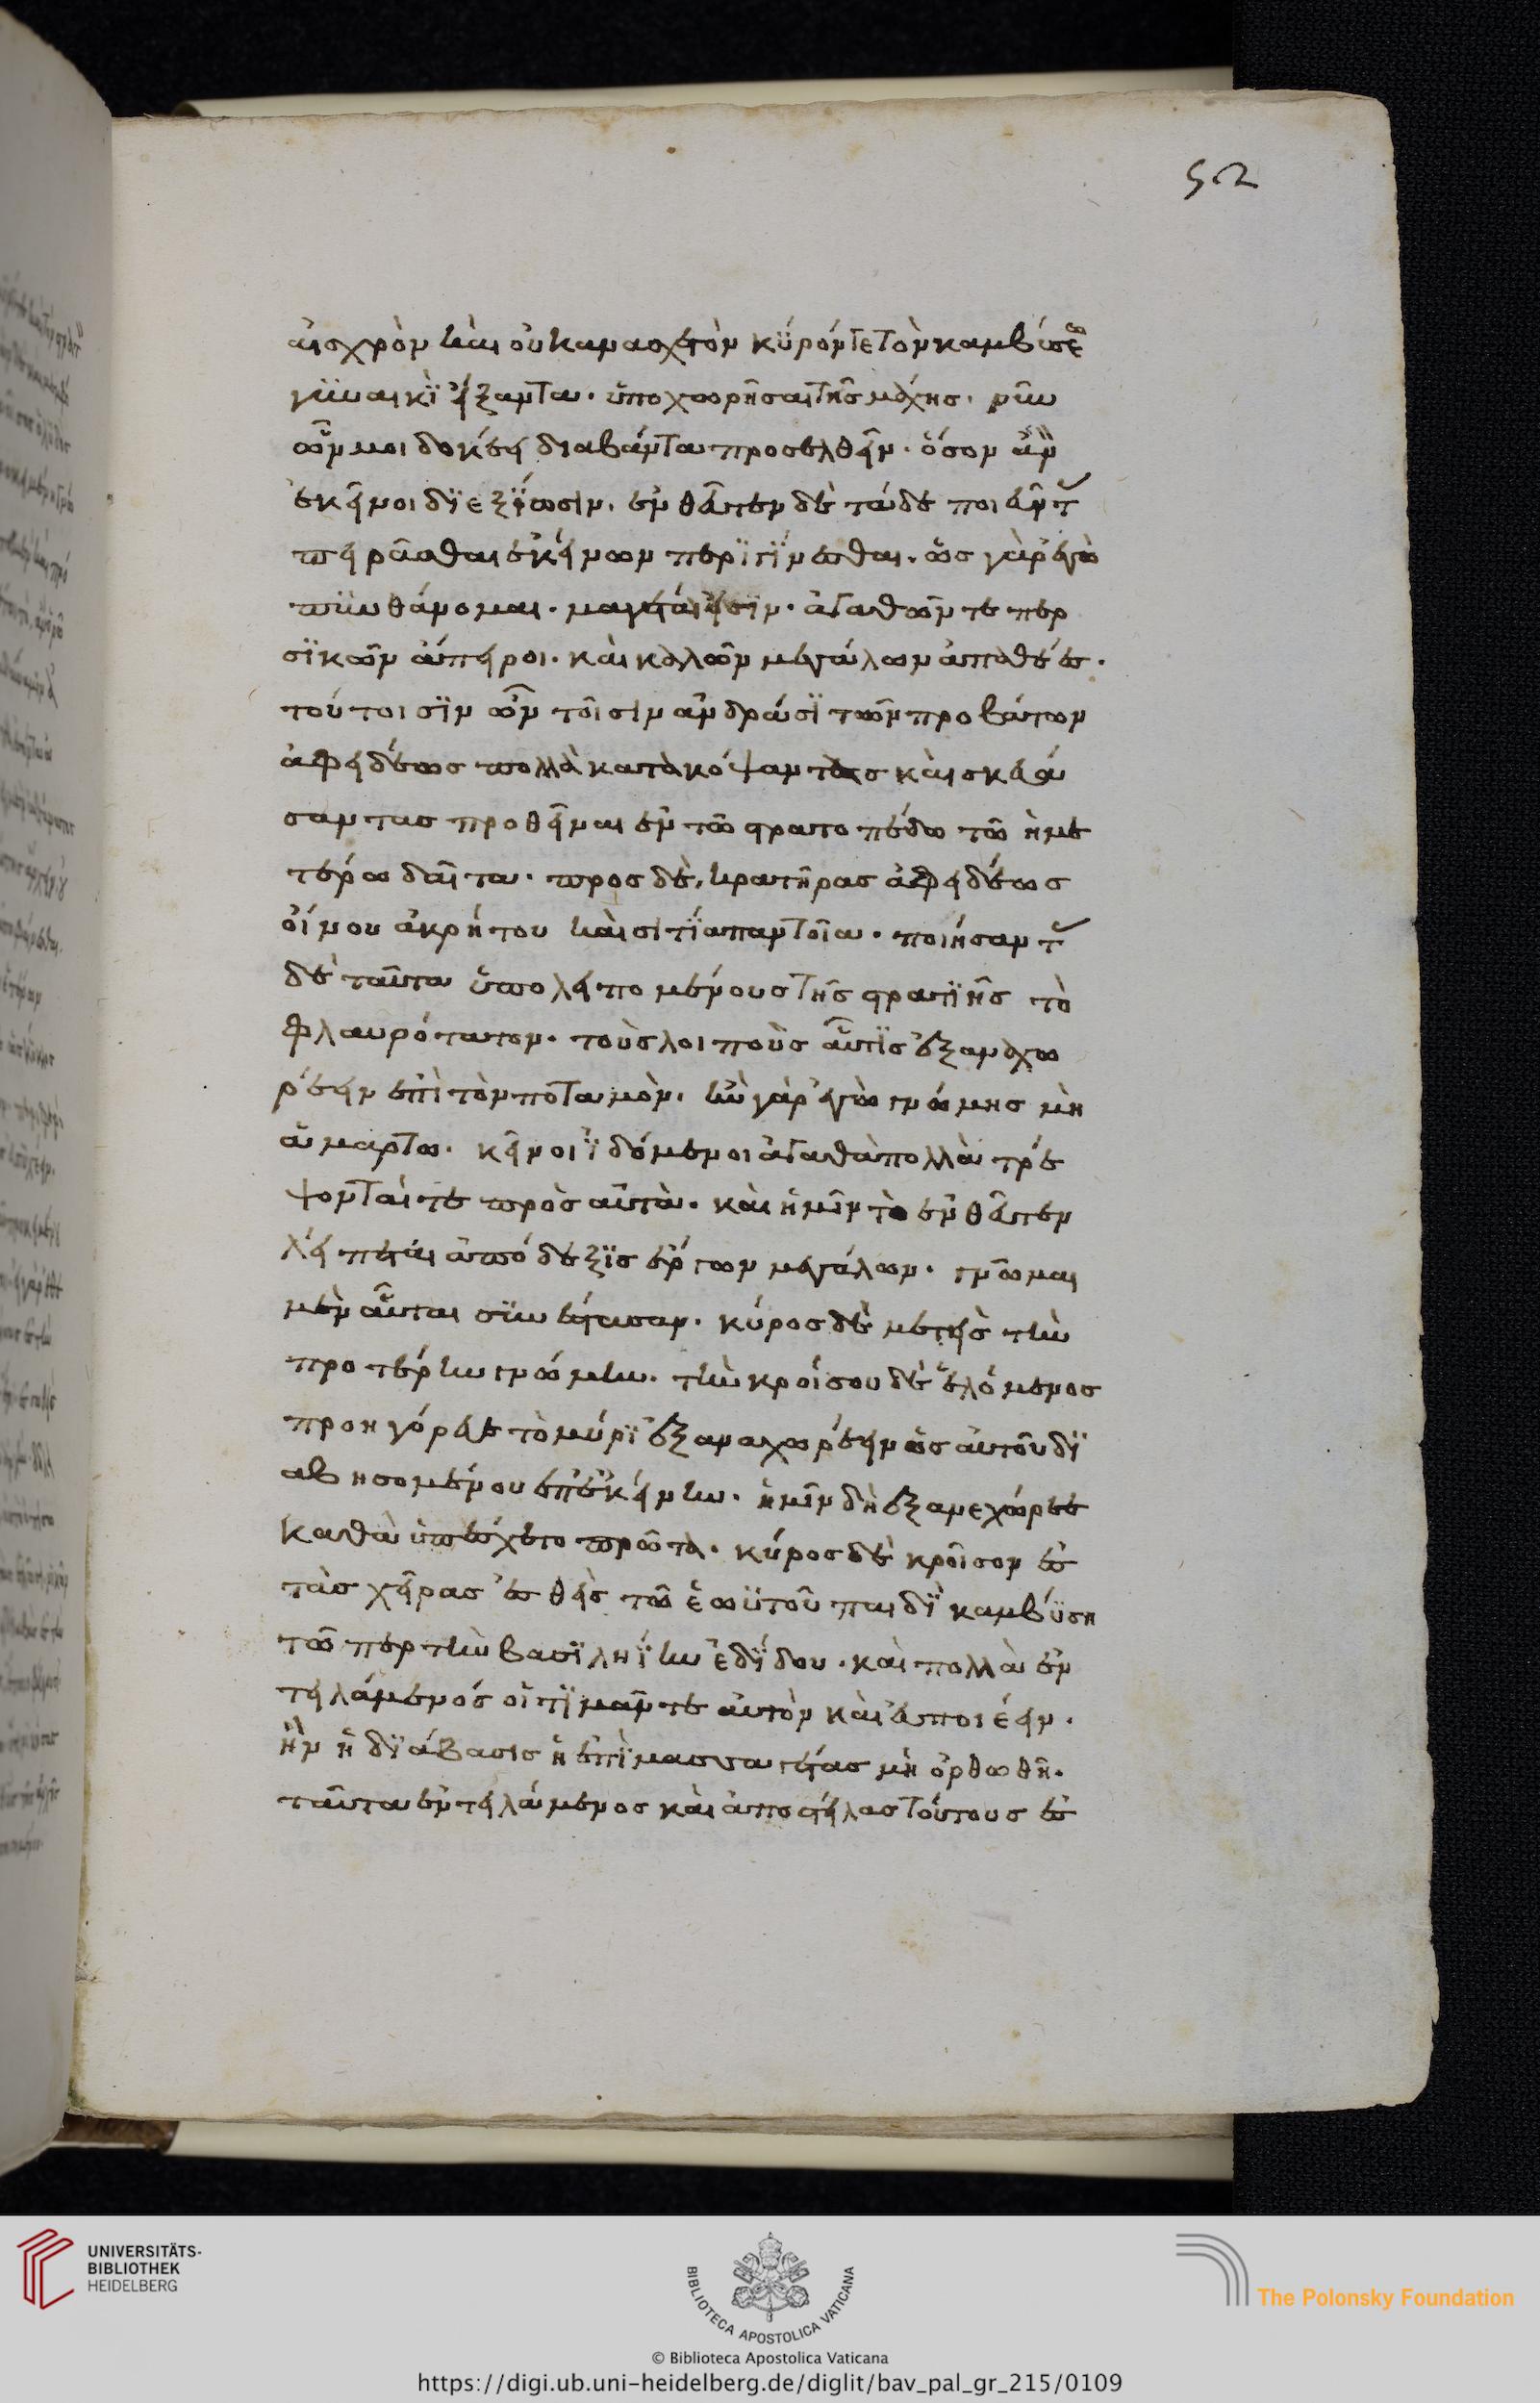 52
αἰσχρὸν καὶ οὐκ ἀνασχετὸν κῦρόν τε τὸν καμβύσεω
γυναικὶ εἴξαντα. ὑποχωρῆσαι τῆς μάχης. νῦν
ὦν μοι δοκέει διαβάντα προσελθεῖν. ὅσον ἂν
ἐκεῖνοι διεξίωσιν. ἐνθεῦτεν δὲ τάδε ποιεῦντ
πειρᾶσθαι ἐκείνων περιγίνεσθαι. ὡς γὰρ ἐγὼ
πυνθάνομαι. μασσαγέται εἰσὶν. ἀγαθῶν τε περ
σικῶν ἄπειροι. καὶ καλῶν μεγάλων ἀπαθέες.
τούτοισιν ὦν τοῖσιν ἀνδράσι τῶν προβάτων
ἀφειδέως πολλὰ κατακόψαντας καὶ σκευά
σαντας προθεῖναι ἐν τῶ στρατοπέδω τῶ ἡμε
τέρω δαῖτα. πρὸς δὲ, κρατῆρας ἀφειδέως
οἴνου ἀκρήτου καὶ σιτία παντοῖα. ποιήσαντ
δὲ ταῦτα ὑπολειπομένους τῆς στρατιῆς τὸ
φλαυρότατον. τοὺς λοιποὺς αὖτις ἐξαναχω
ρέειν ἐπὶ τὸν ποταμὸν. ἢν γὰρ ἐγὼ γνώμης μὴ
ἁμάρτω. κεῖνοι ἰδόμενοι ἀγαθὰ πολλὰ τρέ
ψονταί τε πρὸς αὐτὰ. καὶ ἡμῖν τὸ ἐνθεῦτεν
λείπεται ἀπόδεξις ἔργων μεγάλων. γνῶμαι
μὲν αὗται συνέστασαν. κῦρος δὲ μετεὶς τὴν
προτέρην γνώμην. τὴν κροίσου δὲ ἑλόμενος
προηγόρευε τομύρι ἐξαναχωρέειν ὡς αὐτοῦ δι
αβησομένου ἐπ' ἐκείνην. ἡ μὲν δὴ ἐξανεχώρεε
καθὰ ὑπέσχετο πρῶτα. κῦρος δὲ κροῖσον ἐς
τὰς χεῖρας ἐσθεὶς τῶ ἑωυτοῦ παιδὶ καμβύση
τῶ περ τὴν βασιληίην ἐδίδου. καὶ πολλὰ ἐν
τειλάμενός οἱ τιμᾶν τε αὐτὸν καὶ εὖ ποιέειν.
ἢν ἡ διάβασις ἡ ἐπὶ μασσαγέτας μὴ ὀρθωθῆ.
ταῦτα ἐντειλάμενος καὶ ἀποστείλας τούτους ἐς
UNIVERSITÄTS-
BIBLIOTHEK
HEIDELBERG
BIBLIOTECA APOSTOLICA VATICANA
© Biblioteca Apostolica Vaticana
The Polonsky Foundation
https://digi.ub.uni-heidelberg.de/diglit/bav_pal_gr_215/0109